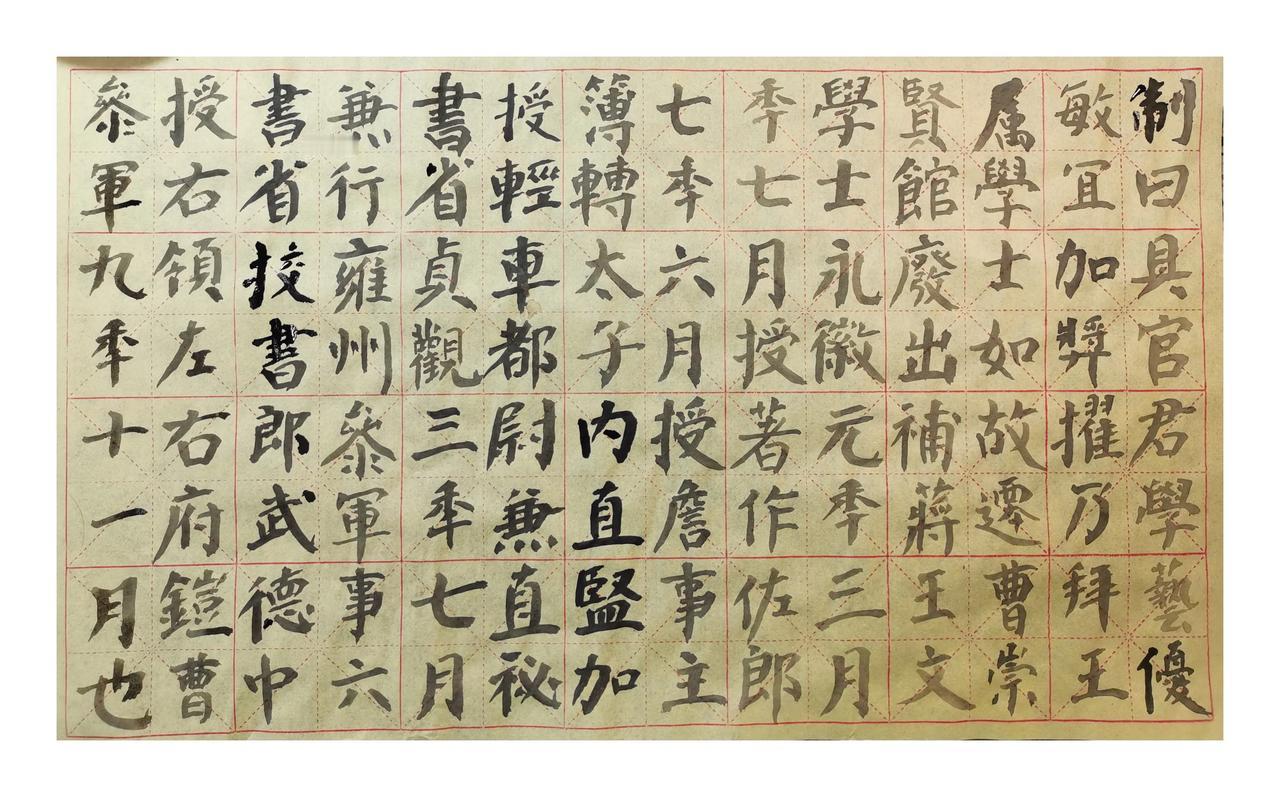 制曰具官君學藝優
敏冝加弉擢乃拜王
属學士如故遷曹崇
賢館廢出補蔣王文
學士永徽元季三月
季七月授著作佐郎
七季六月授詹事主
簿轉太子内直監加
授輕車都尉兼直祕
書省貞觀三季七月
兼行雍州叅軍事六
書省挍書郎武德中
授右領左右府鎧曹
叅軍九季十一月也